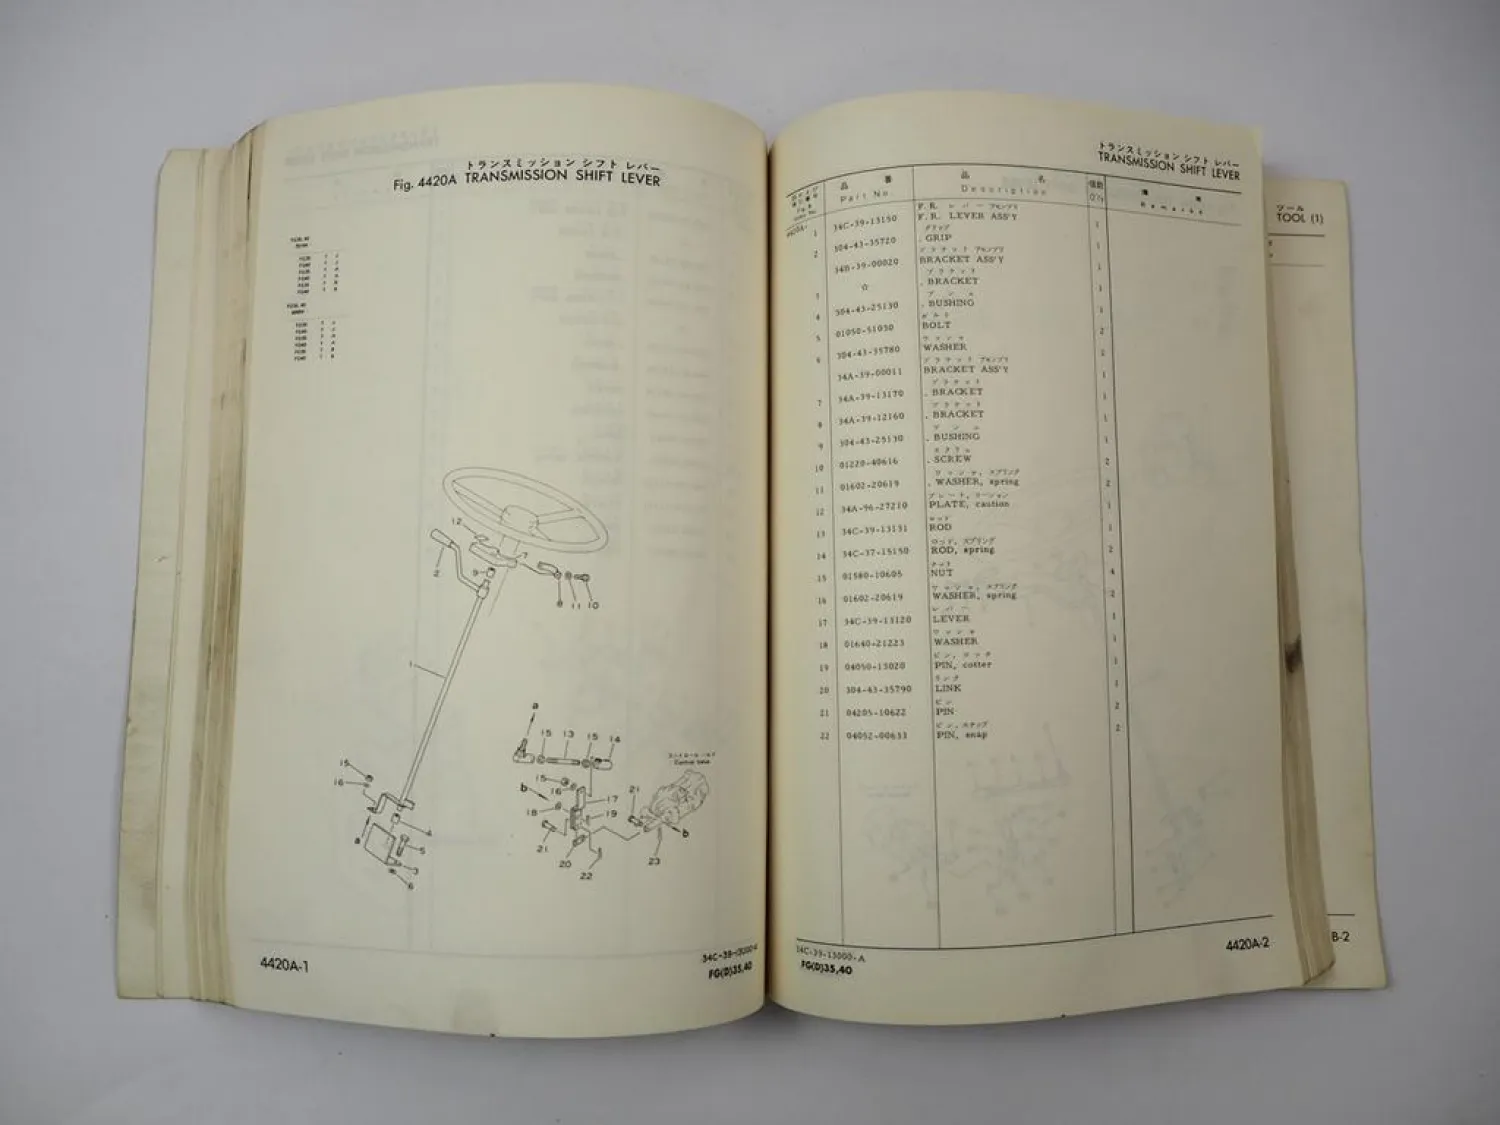 トランスミッション シフト レバー
Fig. 4420A TRANSMISSION SHIFT LEVER
12
2
9
7
8 11 10
1
a
15 13 15 14
Control valve
15
16
15
16
b
17
21
18
19
b
4
21
a
5
20
23
3
22
6
4420A-1
FG(D)35,40
トランスミッション シフト レバー
TRANSMISSION SHIFT LEVER
品 番 品 名 個数 備 考
Part No. Description Q'ty Remarks
4420A-
F.R. レバー アセンブリ
1 34C-39-13150 F.R. LEVER ASS'Y 1
グリップ
2 304-43-35720 . GRIP 1
ブラケット アセンブリ
34B-39-00020 BRACKET ASS'Y 1
ブラケット
3 ☆ . BRACKET 1
ブシュ
4 304-43-25130 . BUSHING 1
ボルト
5 01050-51030 BOLT 2
ワッシャ
6 304-43-35780 WASHER 2
ブラケット アセンブリ
34A-39-00011 BRACKET ASS'Y 1
ブラケット
7 34A-39-13170 . BRACKET 1
ブラケット
8 34A-39-12160 . BRACKET 1
ブシュ
9 304-43-25130 . BUSHING 1
スクリュ
10 01220-40616 . SCREW 2
ワッシャ, スプリング
11 01602-20619 . WASHER, spring 2
プレート, コーション
12 34A-96-27210 PLATE, caution 1
ロッド
13 34C-39-13131 ROD 1
ロッド, スプリング
14 34C-37-15150 ROD, spring 2
ナット
15 01580-10605 NUT 4
ワッシャ, スプリング
16 01602-20619 WASHER, spring 2
レバー
17 34C-39-13120 LEVER 1
ワッシャ
18 01640-21223 WASHER 1
ピン, コッタ
19 04050-13020 PIN, cotter 1
リンク
20 304-43-35790 LINK 1
ピン
21 04205-10622 PIN 2
ピン, スナップ
22 04052-00633 PIN, snap 2
34C-39-13000-A
FG(D)35,40
4420A-2
ツール
TOOL (1)
B-2